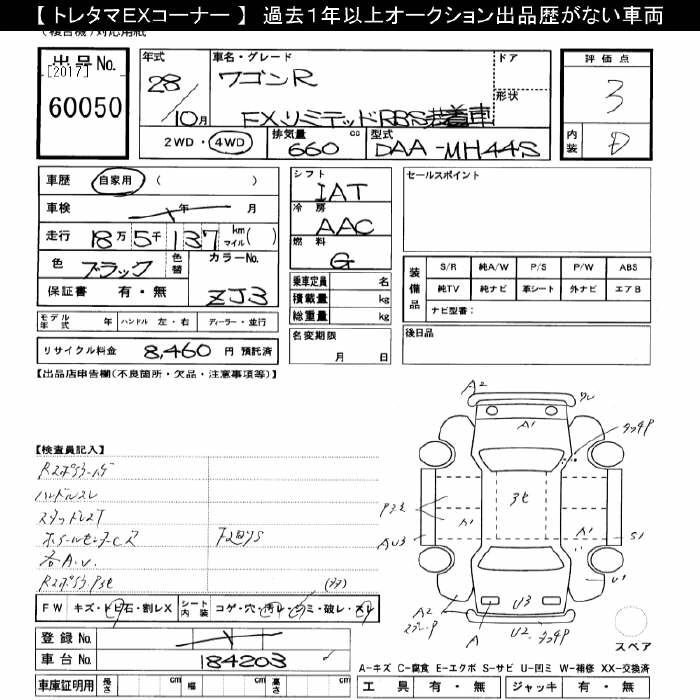 【 トレタマEXコーナー 】 過去１年以上オークション出品歴がない車両
出品No.
[2017]
60050
年式
28
10月
車名・グレード
ワゴンR
FXリミテッドRBS装着車
ドア
形状
2WD・4WD
排気量
660
cc
型式
DAA-MH44S
評価点
3
内装
D
車歴
自家用
(
)
車検
年
月
走行
18万5千137
km
マイル
(
)
色
ブラック
色替
カラーNo.
ZJ3
保証書
有・無
シフト
IAT
冷房
AAC
燃料
G
乗車定員
名
積載量
kg
総重量
kg
名変期限
月
日
セールスポイント
装備品
S/R
純A/W
P/S
P/W
ABS
純TV
純ナビ
革シート
外ナビ
エアB
ナビ型番：
後日品
モデル年式
年
ハンドル
左・右
ディーラー・並行
リサイクル料金
8,460
円 預託済
【出品店申告欄(不良箇所・欠品・注意事項等)】
【検査員記入】
ハンドルスレ
各A.U.
A2
A1
ヌセ
A1
A1
AU3
S1
U1
A2
U3
A
U2
FW
キズ・トビ石・割レX
シート内装
コゲ・穴・汚レ・シミ・破レ・スレ
登録No.
車台No.
184203
車庫証明用
長さ
cm
幅
cm
高さ
cm
スペア
A－キズ C－腐食 E－エクボ S－サビ U－凹ミ W－補修 XX－交換済
工具
有・無
ジャッキ
有・無